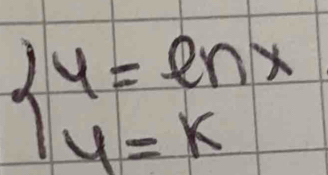 {y = ln x
y = k